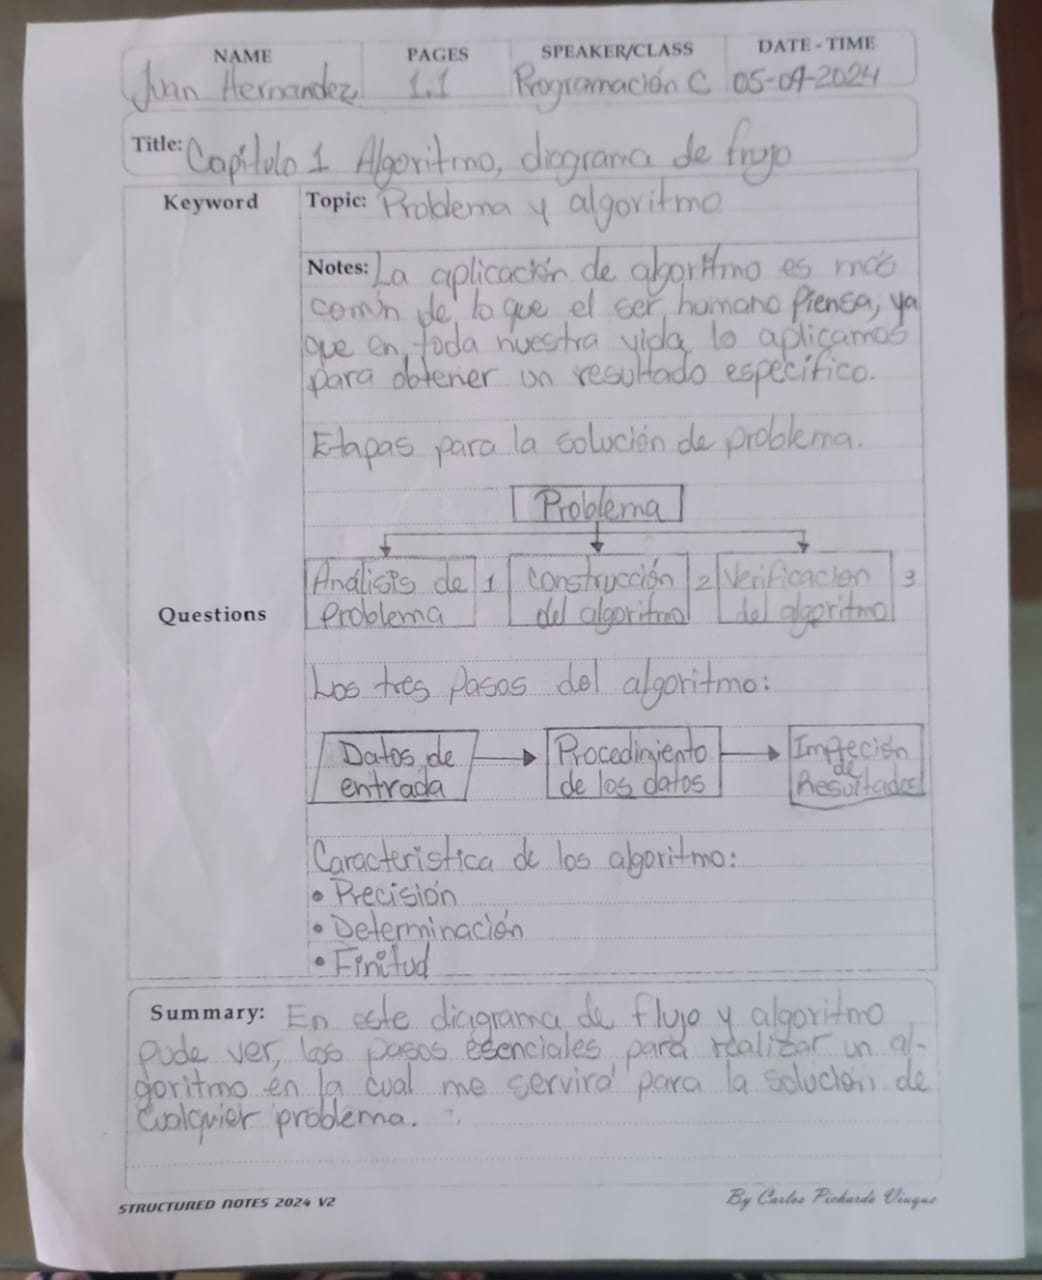 NAME PAGES SPEAKER/CLASS DATE - TIME
Juan Hernandez 1.1 Programación C 05-09-2024
Title: Capítulo 1 Algoritmo, diagrama de flujo
Keyword Topic: Problema y algoritmo
Notes: La aplicación de algoritmo es más
común de lo que el ser humano Piensa, ya
que en toda nuestra vida lo aplicamos
para obtener un resultado específico.
Etapas para la solución de problema.
Problema
Análisis de 1 construcción 2 Verificacion 3
Problema del algoritmo del algoritmo
Questions
Los tres Pasos del algoritmo:
Datos de Procedimiento
entrada de los datos
de
Resultados
Caracteristica de los algoritmo:
• Precisión
• Determinación
• Finitud
Summary: En este diagrama de flujo y algoritmo
pude ver, los pasos esenciales para realizar un al-
goritmo en la cual me servirá para la solución de
cualquier problema.
STRUCTURED NOTES 2024 V2 By Carlos Pichardo